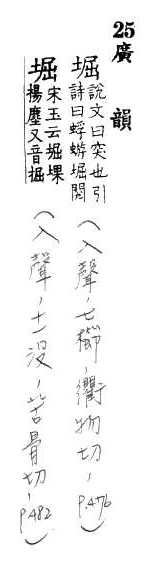 25廣韻
堀 說文曰突也引
詩曰蜉蝣堀閱
(入聲,七櫛,衢物切,P.476)
堀 宋玉云堀堁
揚塵又音掘
(入聲,十一没,苦骨切,P.482)